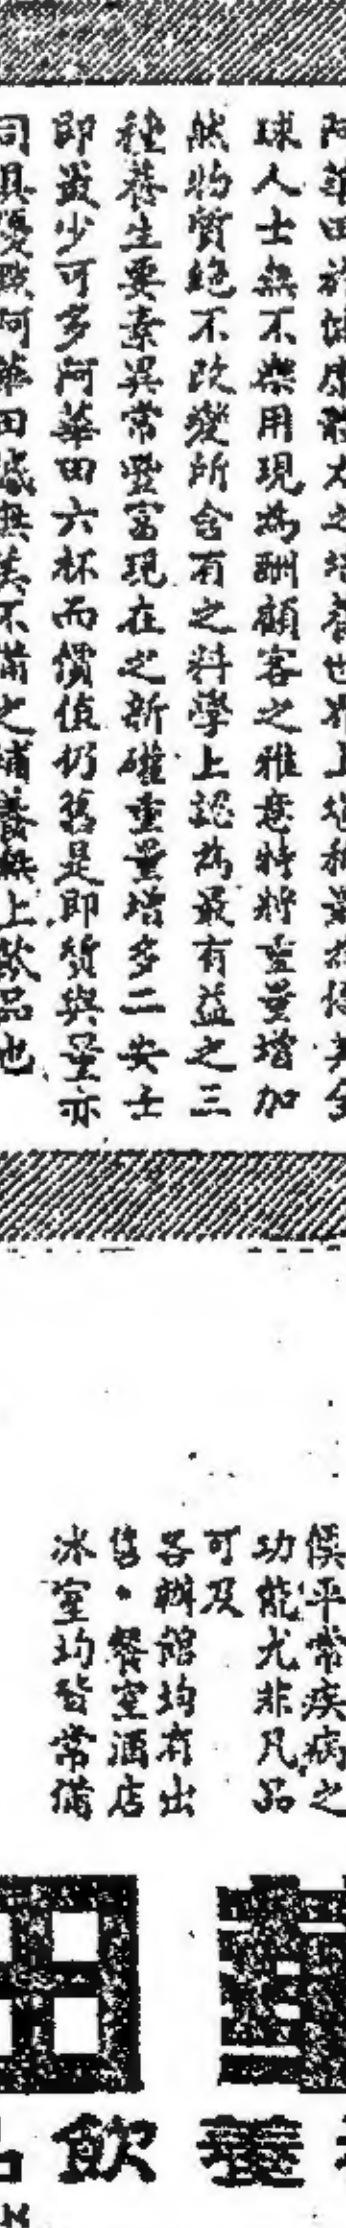 阿華田於健康體力之培養也界上
球人士無不樂用現為酬顧客之雅意特將重量增加
然物質絕不改變所含有之科學上認為最有益之三
種養生要素異常豐富現在之新磁重量增多二安士
即最少可多阿華田六杯而價值仍舊是即質與量亦
同具優點阿華田誠無美不備之補養無上飲品也
候平常疾病之
功能尤非凡品
可及
各辦館均有出
售・餐室酒店
冰室均皆常備
華田
養飲品